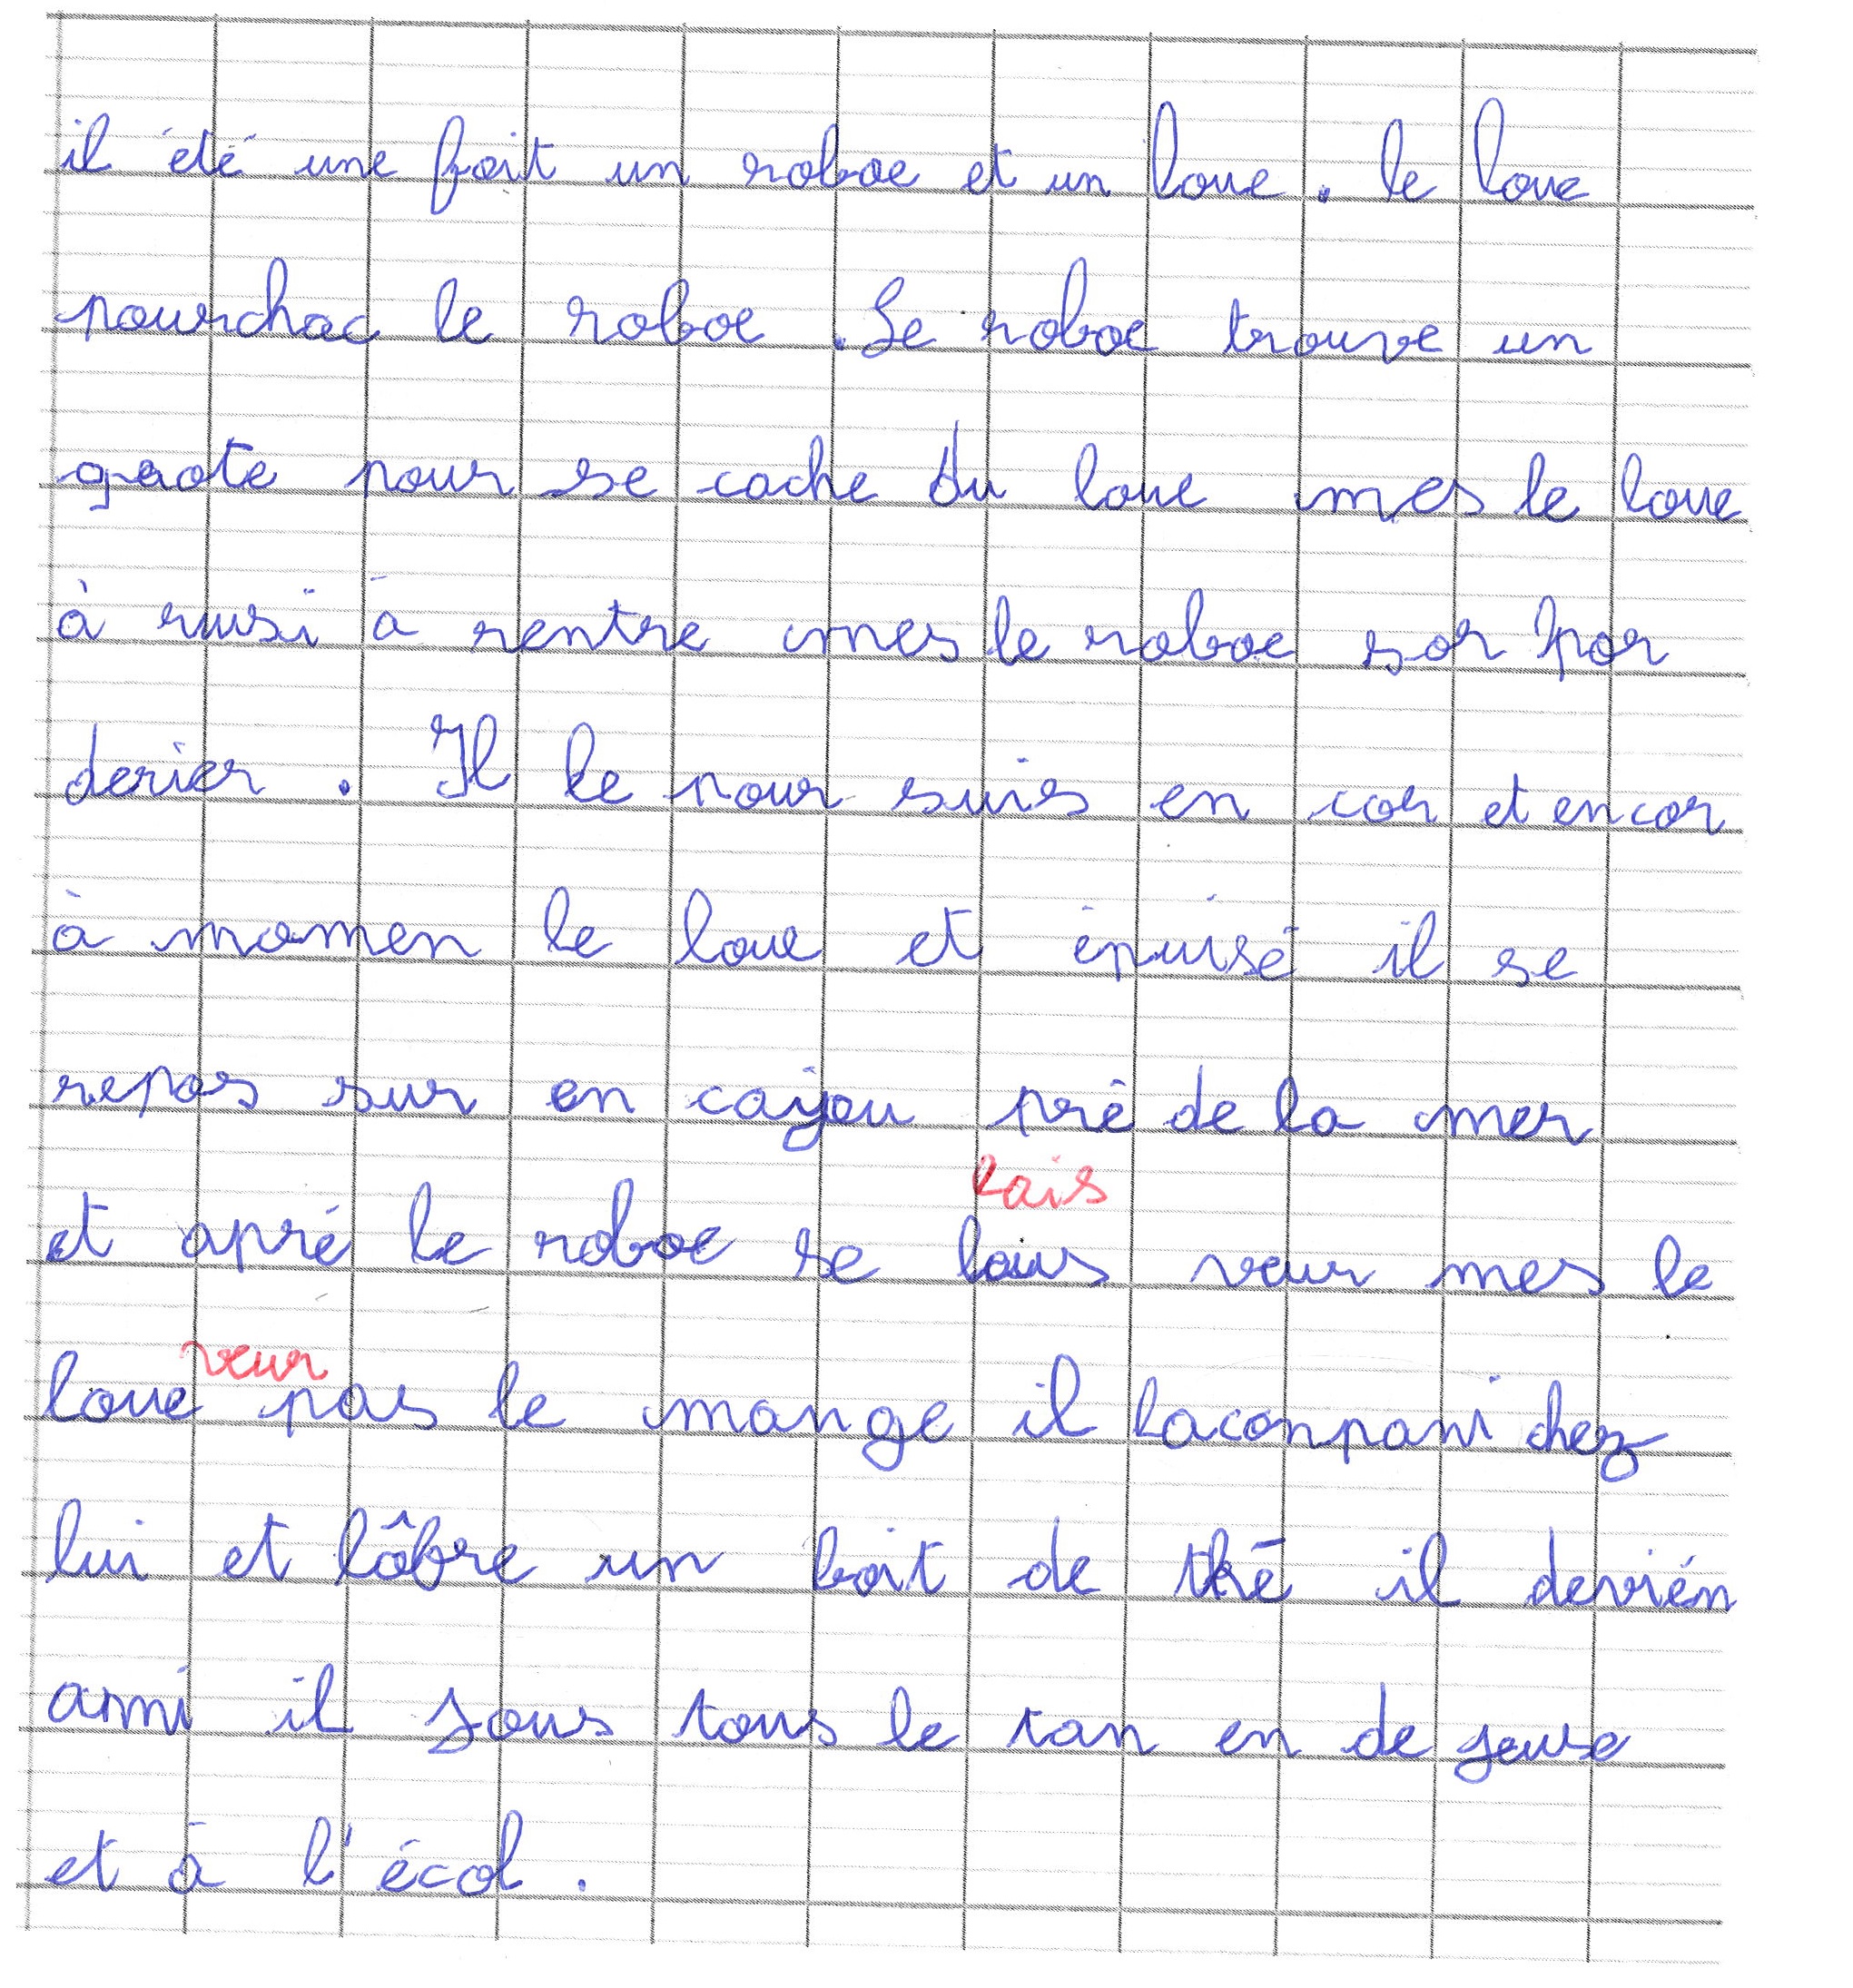 il été une foit un roboe et un loue. le loue
pourchac le roboe. Le roboe trouve un
graote pour se cache du loue mes le loue
à rusi à rentre mes le roboe sor por
derier. Il le pour suis en cor et encor
à momen le loue et épuisé il se
repos sur en cayou pré de la mer
lais
et apré le roboe se lais veur mes le
veur
loue pas le mange il laconpani chez
lui et lôbre un boit de thé il devién
ami il jous tous le tan en de jeuse
et à l'écol.